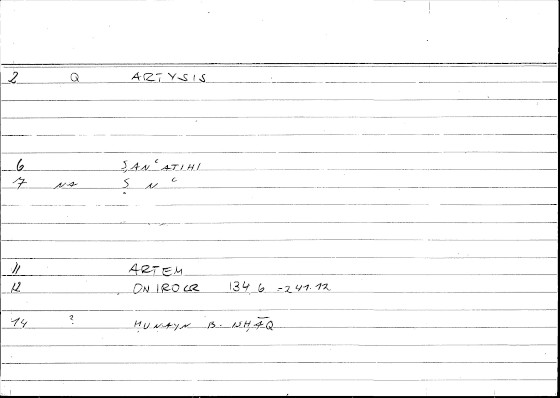 2 Q ARTYSIS
6 ṢANʿATIHI
7 NA Ṣ N ʿ
11 ARTEM
12 ONIROCR 134, 6 = 241.12
14 ? ḤUNAYN B. ISḤĀQ